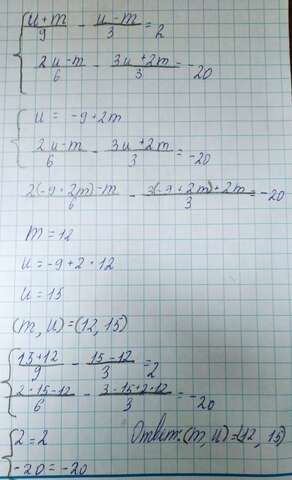 (u+m)/9 - (u-m)/3 = 2
(2u-m)/6 - (3u+2m)/3 = -20
u = -9+2m
(2u-m)/6 - (3u+2m)/3 = -20
(2(-9+2m)-m)/6 - (3(-9+2m)+2m)/3 = -20
m=12
u=-9+2·12
u=15
(m,u)=(12,15)
(15+12)/9 - (15-12)/3 = 2
(2·15-12)/6 - (3·15+2·12)/3 = -20
2=2
Ответ:(m,u)=(12,15)
-20=-20